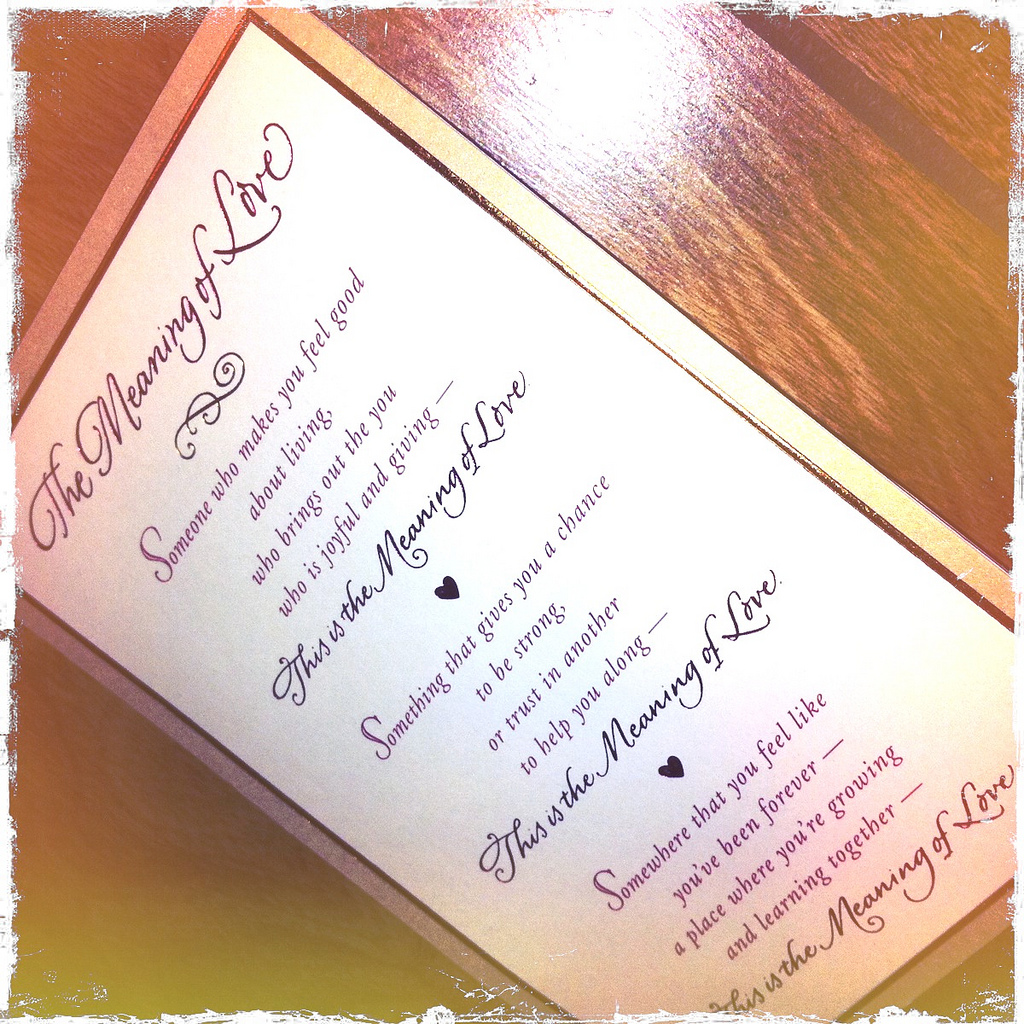 The Meaning of Love
Someone who makes you feel good
about living,
who brings out the you
who is joyful and giving —
This is the Meaning of Love.
Something that gives you a chance
to be strong,
or trust in another
to help you along —
This is the Meaning of Love.
Somewhere that you feel like
you've been forever —
a place where you're growing
and learning together —
This is the Meaning of Love